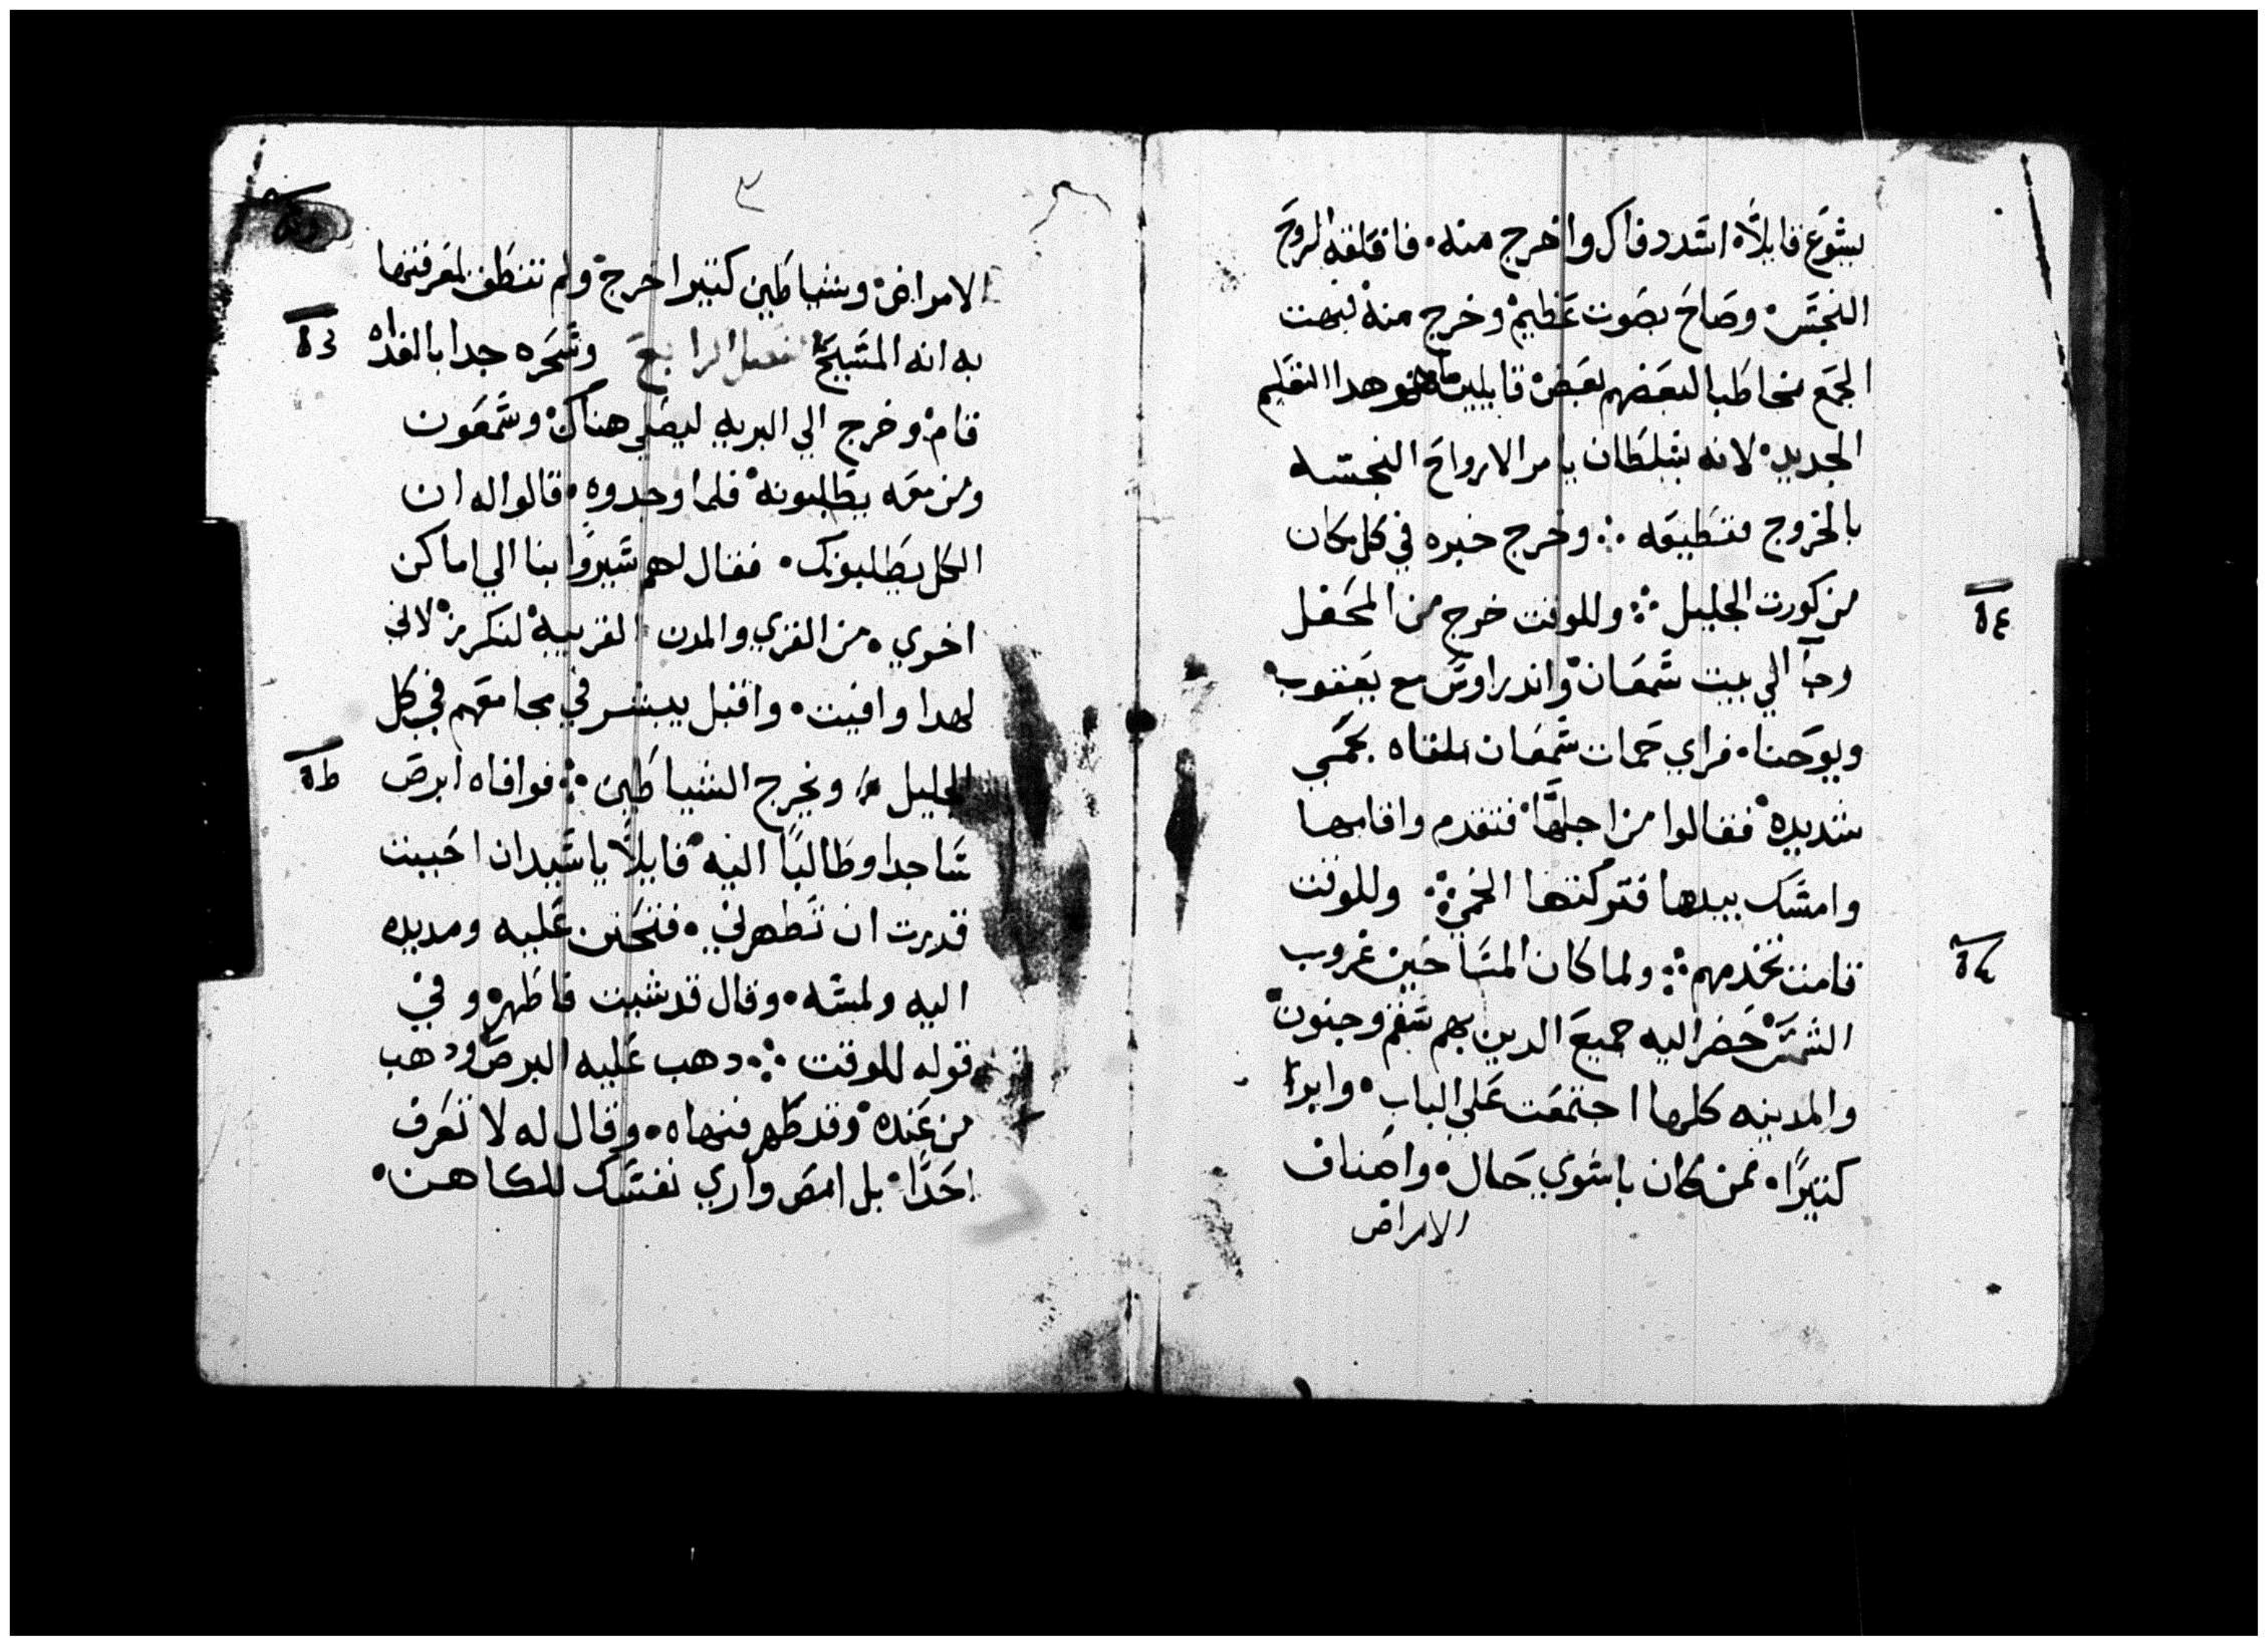 يشوع قايلاً اشدد فاك واخرج منه. فاقلقه الروح
النجس وصاح بصوت عظيم وخرج منه فبهت
الجمع مخاطبا لبعضهم بعض قايلين ما هو هدا التعليم
الجديد لانه بسلطان يامر الارواح النجسه
بالخروج فتطيعه ⁘ وخرج خبره في كل مكان
من كورت الجليل ⁘ وللوقت خرج من المحفل
وجآ الي بيت سمعان واندراوس مع يعقوب
ويوحنا. فراي حمات سمعان ملقاه بحمي
شديده فقالوا من اجلها فتقدم واقامها
وامسك بيدها فتركتها الحمي ⁘ وللوقت
قامت تخدمهم ⁘ ولما كان المسا حين غروب
الشمس حضر اليه جميع الدين بهم سقم وجنون
والمدينه كلها اجتمعت علي الباب. وابرا
كثيراً. ممن كان باسوي حال. واصناف
الامراض
٥٤
الامراض وشياطين كثيرا اخرج ولم تنطق لمعرفتها
به انه المسيح الفصل الرابع وسحره جدا بالغداه
قام وخرج الي البريه ليصلي هناك وسمعون
ومن معه يطلبونه فلما وجدوه. قالوا له ان
الكل يطلبونك. فقال لهم سيروا بنا الي اماكن
اخري. من القري والمدن القريبه لنكرز لاني
لهدا وافيت. واقبل يبشر في مجامعهم في كل
الجليل ويخرج الشياطين ⁘ فوافاه ابرص
ساجدا وطالباً اليه قايلاً يا سيد ان احببت
قدرت ان تطهرني. فتحنن عليه ومد يده
اليه ولمسه. وقال قد شيت فاطهر وفي
قوله للوقت ⁘ دهب عليه البرص ودهب
من عنده وقد طهر فنهاه. وقال له لا تعرف
احداً بل امض واري نفسك للكاهن